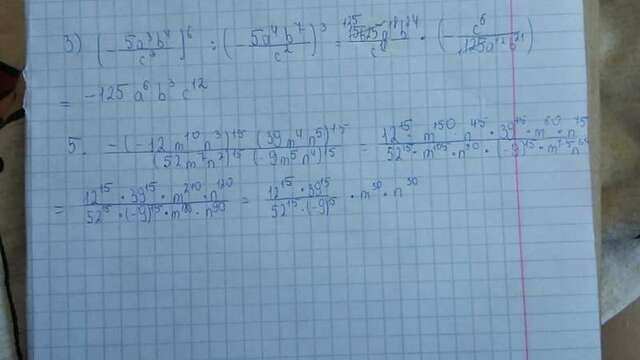 3) (- 5a³b⁴ / c³)⁶ : (- 5a⁴b⁷ / c²)³ = 125 a¹⁸b²⁴ / c⁸ · (- c⁶ / 125a¹²b²¹)
= -125 a⁶ b³ c¹²
5. -(-12 m¹⁰ n³)¹⁵ (39 m⁴ n⁵)¹⁵ / (52m⁷n²)¹⁵ (-9m⁵n⁴)¹⁵ = 12¹⁵ · m¹⁵⁰ n⁴⁵ · 39¹⁵ · m⁶⁰ · n⁷⁵ / 52¹⁵ · m¹⁰⁵ · n³⁰ · (-9)¹⁵ · m⁷⁵ n⁶⁰
= 12¹⁵ · 39¹⁵ · m²¹⁰ · n¹²⁰ / 52¹⁵ · (-9)¹⁵ · m¹⁸⁰ · n⁹⁰ = 12¹⁵ · 39¹⁵ / 52¹⁵ · (-9)¹⁵ · m³⁰ · n³⁰